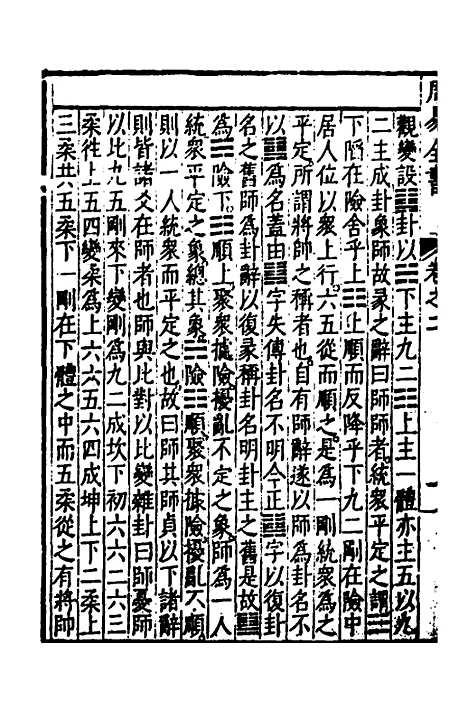 觀變設䷆卦以☵下主九二☷上主一體亦主五以九
二主成卦象師故彖之辭曰師師者統眾平定之謂☵
下陷在險舍乎上☷止順而反降乎下九二剛在險中
居人位以眾上行六五從而順之是為一剛統眾為之
平定所謂將帥之稱者也自有師辭遂以師為卦名不
以䷆為名蓋由䷆字失傳卦名不明今正䷆字以復卦
名之舊師為卦辭以復彖稱卦名明卦主之舊是故䷆
為☵險下☷順上聚眾據險擾亂不定之象師為一人
統眾平定之象總其象☵險☷順聚眾據險擾亂不順
則以一人統眾而平定之也故曰師其師貞以下諸辭
則皆諸爻在師者也師與比對以比變雜卦曰師憂師
以比九五剛來下變剛為九二成坎下初六六二六三
柔往上五四變柔為上六六五六四成坤上下二柔上
三柔共五柔下一剛在下體之中而五柔從之有將帥
周易全書
卷之二